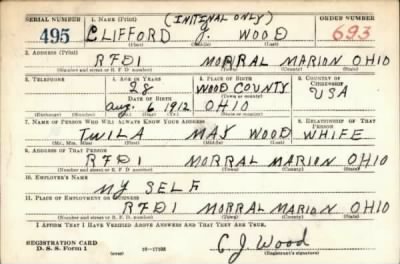 SERIAL NUMBER 1. NAME (Print) (INITINAL ONLY) ORDER NUMBER
495 CLIFFORD J. WOOD 693
(First) (Middle) (Last)
2. ADDRESS (Print)
RFD1 MORRAL MARION OHIO
(Number and street or R. F. D. number) (Town) (County) (State)
3. TELEPHONE 4. AGE IN YEARS 5. PLACE OF BIRTH 6. COUNTRY OF CITIZENSHIP
28 WOOD COUNTY USA
DATE OF BIRTH (Town or county)
Aug. 6 1912 OHIO
(Exchange) (Number) (Mo.) (Day) (Yr.) (State or country)
7. NAME OF PERSON WHO WILL ALWAYS KNOW YOUR ADDRESS 8. RELATIONSHIP OF THAT PERSON
TWILA MAY WOOD WHIFE
(Mr., Mrs., Miss) (First) (Middle) (Last)
9. ADDRESS OF THAT PERSON
RFD1 MORRAL MARION OHIO
(Number and street or R. F. D. number) (Town) (County) (State)
10. EMPLOYER'S NAME
MY SELF
11. PLACE OF EMPLOYMENT OR BUSINESS
RFD1 MORRAL MARION OHIO
(Number and street or R. F. D. number) (Town) (County) (State)
I AFFIRM THAT I HAVE VERIFIED ABOVE ANSWERS AND THAT THEY ARE TRUE.
REGISTRATION CARD
D. S. S. Form 1 (over) C. J. Wood
(Registrant's signature)